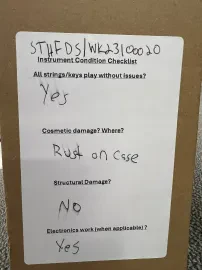 STHFDS/WK23100020
Instrument Condition Checklist
All strings/keys play without issues?
Yes
Cosmetic damage? Where?
Rust on Case
Structural Damage?
No
Electronics work (when applicable)?
Yes